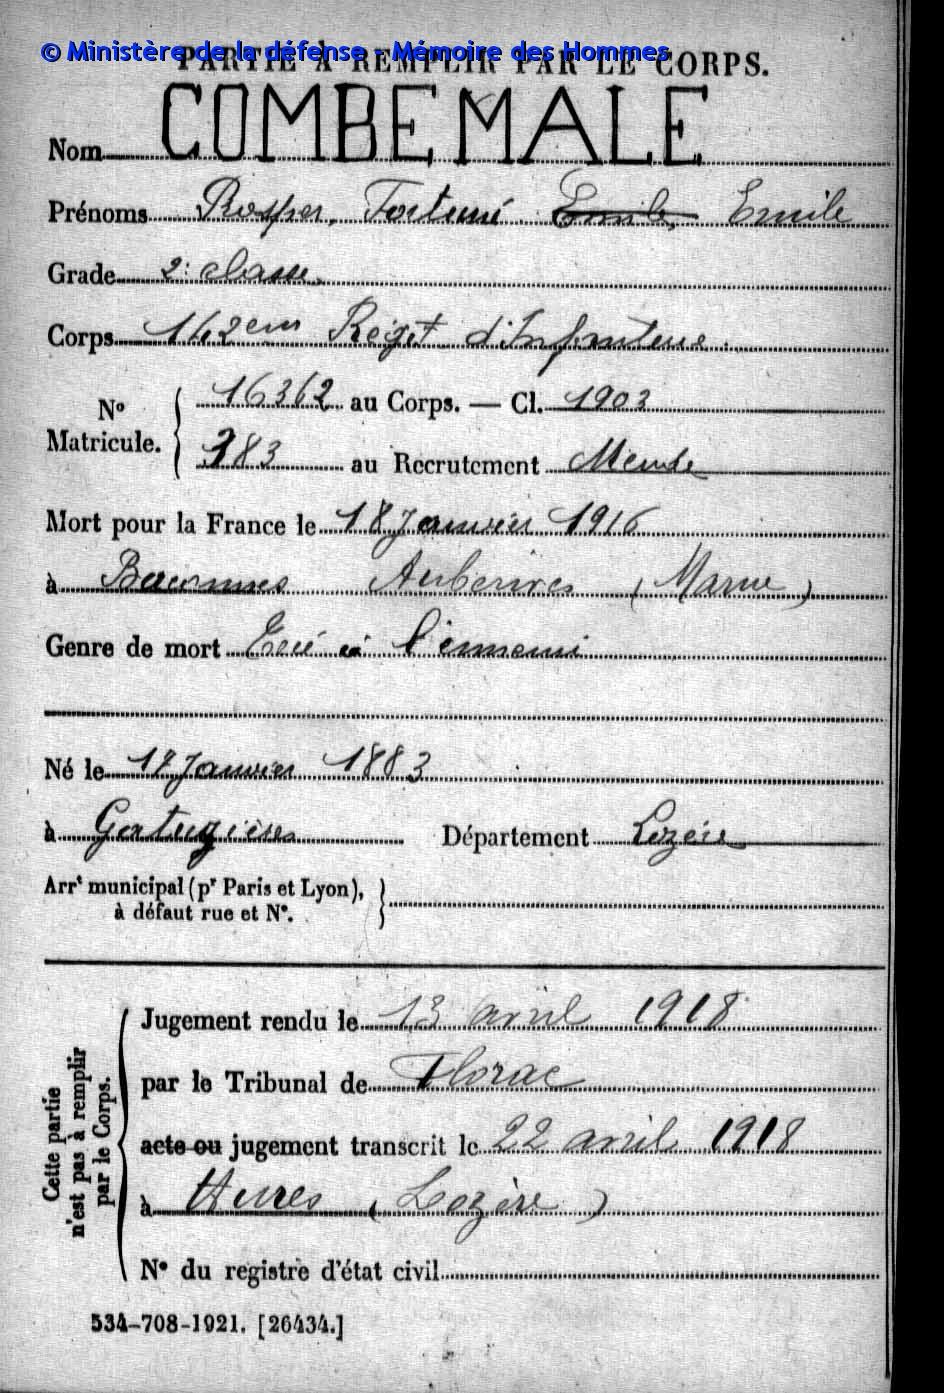 © Ministère de la défense - Mémoire des Hommes
PARTIE À REMPLIR PAR LE CORPS.
Nom COMBEMALE
Prénoms Prosper, Fortuné Emile, Emile
Grade 2e classe
Corps 142eme Régt d'Infanterie.
No Matricule. 16362 au Corps. — Cl. 1903
383 au Recrutement Mende
Mort pour la France le 18 Janvier 1916
à Auberives (Marne)
Genre de mort Tué à l'ennemi
Né le 17 Janvier 1883
à Gatuzières Département Lozère
Arrt municipal (pr Paris et Lyon),
à défaut rue et No.
Cette partie
n'est pas à remplir
par le Corps.
Jugement rendu le 13 avril 1918
par le Tribunal de Florac
acte ou jugement transcrit le 22 avril 1918
à Hures (Lozère)
No du registre d'état civil
534-708-1921. [26434.]